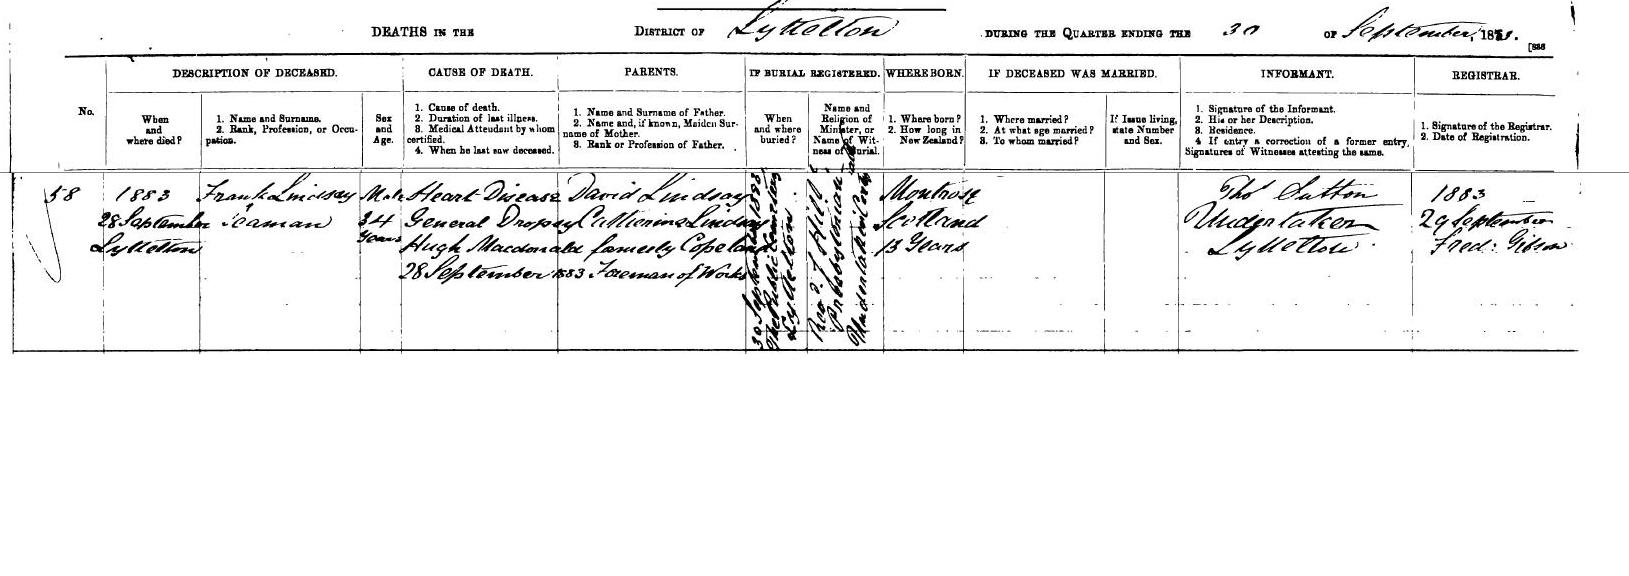 DEATHS IN THE DISTRICT OF Lyttelton DURING THE QUARTER ENDING THE 30 OF September, 1883.
DESCRIPTION OF DECEASED. CAUSE OF DEATH. PARENTS. IF BURIAL REGISTERED. WHERE BORN. IF DECEASED WAS MARRIED. INFORMANT. REGISTRAR.
No.
When
and
where died?
1. Name and Surname.
2. Rank, Profession, or Occu-
pation.
Sex
and
Age.
1. Cause of death.
2. Duration of last illness.
3. Medical Attendant by whom
certified.
4. When he last saw deceased.
1. Name and Surname of Father.
2. Name and, if known, Maiden Sur-
name of Mother.
3. Rank or Profession of Father.
When
and where
buried?
Name and
Religion of
Minister, or
Name of Wit-
ness of Burial.
1. Where born?
2. How long in
New Zealand?
1. Where married?
2. At what age married?
3. To whom married?
If Issue living,
state Number
and Sex.
1. Signature of the Informant.
2. His or her Description.
3. Residence.
4 If entry a correction of a former entry,
Signatures of Witnesses attesting the same.
1. Signature of the Registrar.
2. Date of Registration.
58
1883
28 September
Lyttelton
Frank Lindsay
Seaman
Male
34
Years
Heart Disease
General Dropsy
Hugh Macdonald
28 September 1883
David Lindsay
Catherine Lindsay
formerly Copeland
Foreman of Works
30 September 1883
The Public Cemetery
Lyttelton
Revd. J Hill
Presbyterian
Undertaking
Montrose
Scotland
13 Years
Thos Sutton
Undertaker
Lyttelton
1883
29 September
Fred: Gibson